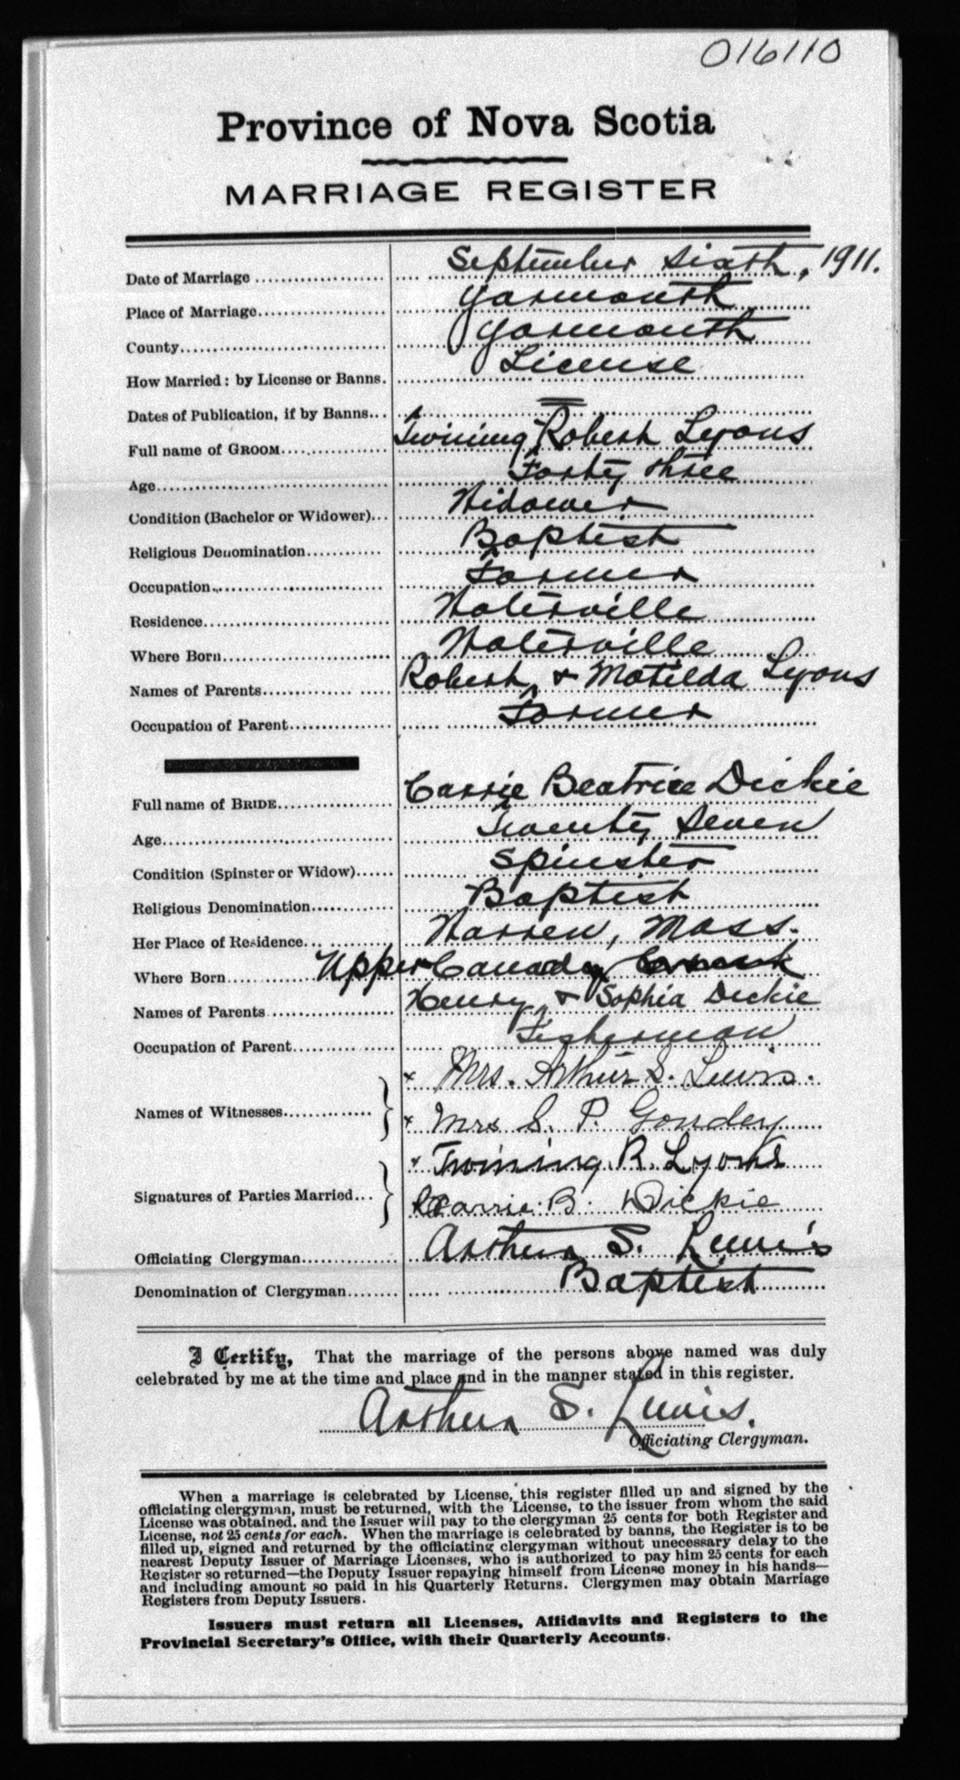 016110
Province of Nova Scotia
MARRIAGE REGISTER
Date of Marriage September Sixth, 1911.
Place of Marriage Yarmouth
County Yarmouth
How Married: by License or Banns. License
Dates of Publication, if by Banns
Full name of GROOM Twining Robert Lyons
Age Forty three
Condition (Bachelor or Widower) Widower
Religious Denomination Baptist
Occupation Farmer
Residence Waterville
Where Born Waterville
Names of Parents Robert & Matilda Lyons
Occupation of Parent Farmer
Full name of BRIDE Carrie Beatrice Dickie
Age Twenty Seven
Condition (Spinster or Widow) Spinster
Religious Denomination Baptist
Her Place of Residence Warren, Mass.
Where Born Upper Canada
Names of Parents Henry & Sophia Dickie
Occupation of Parent Fisherman
Names of Witnesses x Mrs. Arthur S. Lewis.
x Mrs S. P. Goudey
Signatures of Parties Married x Twining R. Lyons
Carrie B. Dickie
Officiating Clergyman Arthur S. Lewis
Denomination of Clergyman Baptist
I Certify, That the marriage of the persons above named was duly
celebrated by me at the time and place and in the manner stated in this register.
Arthur S. Lewis.
Officiating Clergyman.
When a marriage is celebrated by License, this register filled up and signed by the
officiating clergyman, must be returned, with the License, to the issuer from whom the said
License was obtained, and the Issuer will pay to the clergyman 25 cents for both Register and
License, not 25 cents for each. When the marriage is celebrated by banns, the Register is to be
filled up, signed and returned by the officiating clergyman without unecessary delay to the
nearest Deputy Issuer of Marriage Licenses, who is authorized to pay him 25 cents for each
Register so returned—the Deputy Issuer repaying himself from License money in his hands—
and including amount so paid in his Quarterly Returns. Clergymen may obtain Marriage
Registers from Deputy Issuers.
Issuers must return all Licenses, Affidavits and Registers to the
Provincial Secretary's Office, with their Quarterly Accounts.